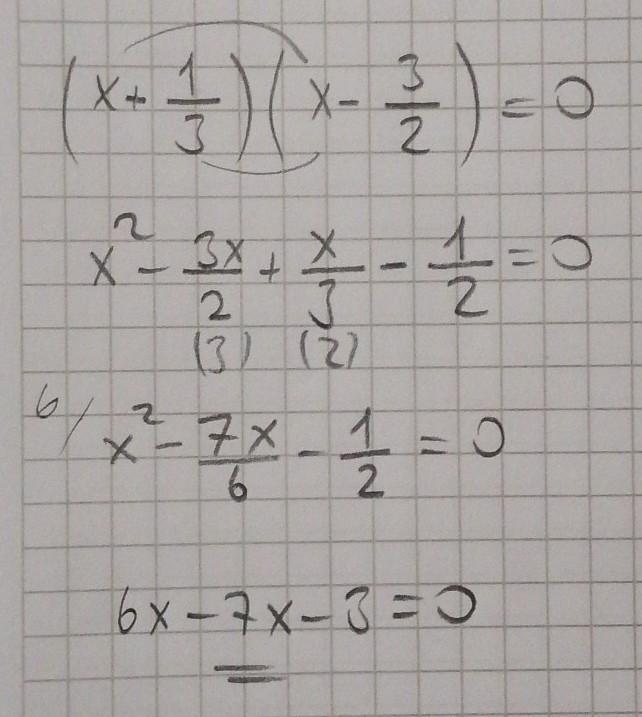 (x + 1/3)(x - 3/2) = 0
x² - 3x/2 + x/3 - 1/2 = 0
(3) (2)
6/ x² - 7x/6 - 1/2 = 0
6x - 7x - 3 = 0